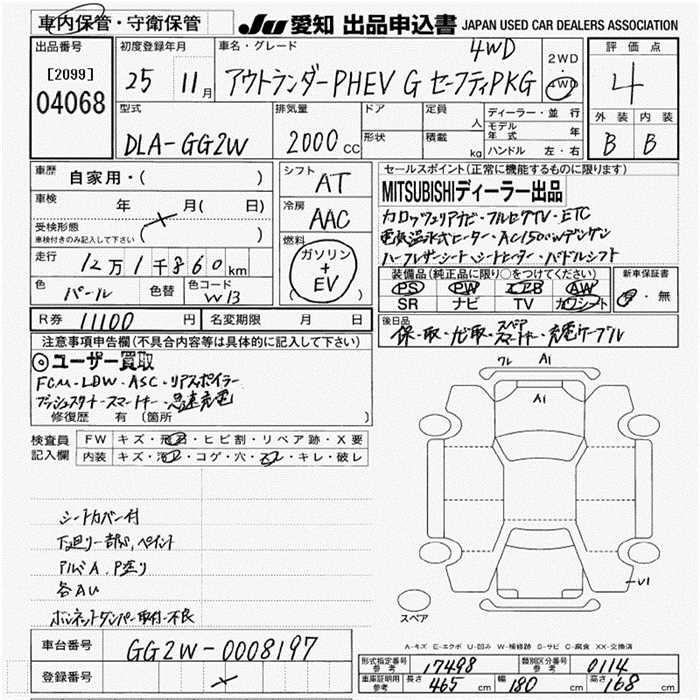 車内保管・守衛保管
JU 愛知 出品申込書 JAPAN USED CAR DEALERS ASSOCIATION
出品番号
[2099]
04068
初度登録年月
25 11月
車名・グレード
4WD
アウトランダーPHEV G セーフティPKG
2WD
・
4WD
評価点
4
外装 内装
B B
型式
DLA-GG2W
排気量
2000 CC
ドア
形状
定員 人
積載 kg
ディーラー・並行
モデル年式 年
ハンドル 左・右
車歴
自家用・( )
車検 年 月( 日)
受検形態
車検付きのみ記入して下さい ( )
走行
12万1千860km
色 パール
色替
色コード W13
シフト AT
冷房 AAC
燃料
ガソリン
+
EV
( )
セールスポイント(正常に機能するものに限ります)
MITSUBISHIディーラー出品
カロッツェリアナビ・フルセグTV・ETC
電気温水式ヒーター・AC1500Wデンゲン
ハーフレザーシート・シートヒーター・パドルシフト
装備品(純正品に限り○をつけてください)
PS PW エアB AW
SR ナビ TV カワシート
新車保証書
有・無
R券 11100 円
名変期限 月 日
後日品
保・取・ナビ取・スペアスマートキー・充電ケーブル
注意事項申告欄(不具合内容等は具体的に記入して下さい)
◎ユーザー買取
FCM・LDW・ASC・リアスポイラー
プッシュスタート・スマートキー・急速充電
修復歴 有〔箇所 〕
検査員
記入欄
FW キズ・飛石・ヒビ割・リペア跡・X要
内装 キズ・汚レ・コゲ・穴・スレ・キレ・破レ
シートカバー付
下廻り一部サビ、ペイント
アルミA、P塗り
各AU
ボンネットダンパー取付不良
ワレ A1
A1
U1
スペア
A-キズ E-エクボ U-凹み W-補修跡 S-サビ C-腐食 XX-交換済
車台番号 GG2W-0008197
登録番号
型式指定番号 参考 17498
類別区分番号 参考 0114
車庫証明用 参考 長さ 465 cm 幅 180 cm 高さ 168 cm